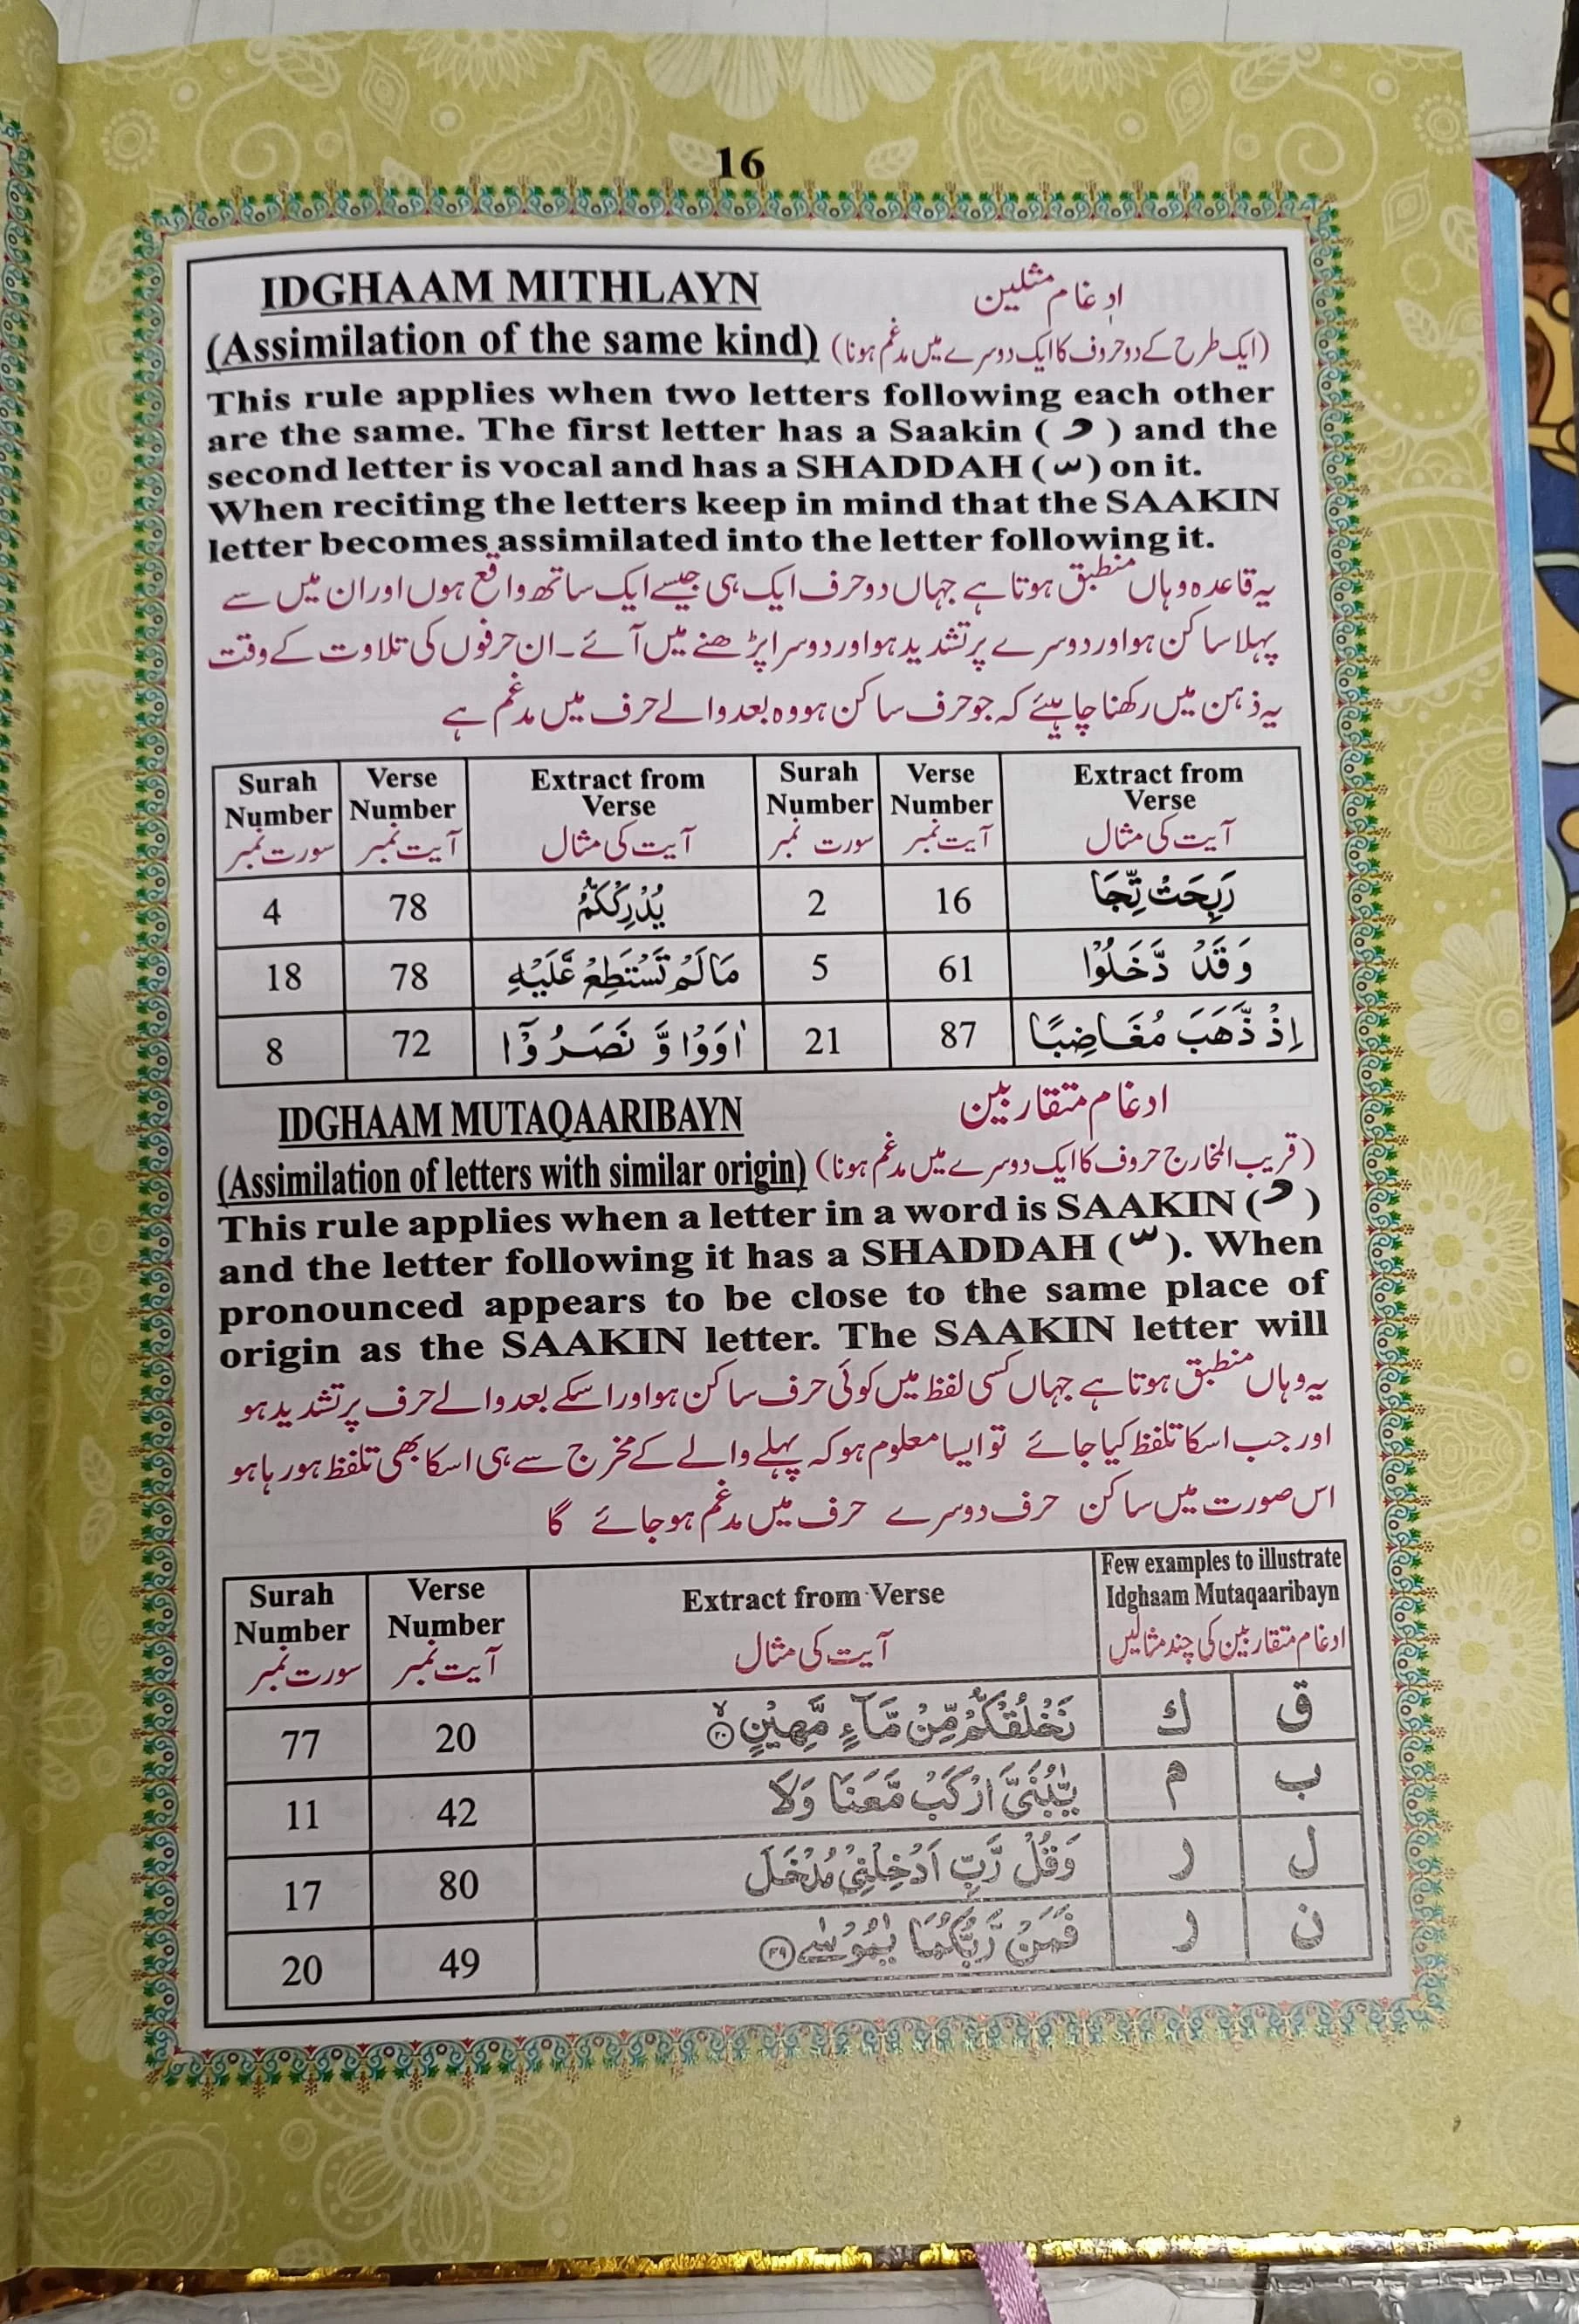 16
IDGHAAM MITHLAYN ادغام مثلین
(Assimilation of the same kind) (ایک طرح کے دو حروف کا ایک دوسرے میں مدغم ہونا)
This rule applies when two letters following each other
are the same. The first letter has a Saakin ( ) and the
second letter is vocal and has a SHADDAH ( ّ ) on it.
When reciting the letters keep in mind that the SAAKIN
letter becomes assimilated into the letter following it.
یہ قاعدہ وہاں منطبق ہوتا ہے جہاں دو حرف ایک ہی جیسے ایک ساتھ واقع ہوں اور ان میں سے
پہلا ساکن ہو اور دوسرے پر تشدید ہو اور دوسرا پڑھنے میں آئے۔ ان حرفوں کی تلاوت کے وقت
یہ ذہن میں رکھنا چاہیئے کہ جو حرف ساکن ہو وہ بعد والے حرف میں مدغم ہے
Surah Verse Extract from Surah Verse Extract from
Number Number Verse Number Number Verse
سورت نمبر آیت نمبر آیت کی مثال سورت نمبر آیت نمبر آیت کی مثال
4 78 يُدْرِكْكُّمُ 2 16 رَبِحَتْ تِّجَا
18 78 مَا لَمْ تَسْتَطِعْ عَّلَيْهِ 5 61 وَقَدْ دَّخَلُوْا
8 72 اٰوَوْا وَّ نَصَرُوْٓا 21 87 اِذْ ذَّهَبَ مُغَاضِبًا
IDGHAAM MUTAQAARIBAYN ادغام متقاربین
(Assimilation of letters with similar origin) (قریب المخارج حروف کا ایک دوسرے میں مدغم ہونا)
This rule applies when a letter in a word is SAAKIN ( )
and the letter following it has a SHADDAH ( ّ ). When
pronounced appears to be close to the same place of
origin as the SAAKIN letter. The SAAKIN letter will
یہ وہاں منطبق ہوتا ہے جہاں کسی لفظ میں کوئی حرف ساکن ہو اور اسکے بعد والے حرف پر تشدید ہو
اور جب اسکا تلفظ کیا جائے تو ایسا معلوم ہو کہ پہلے والے کے مخرج سے ہی اسکا بھی تلفظ ہو رہا ہو
اس صورت میں ساکن حرف دوسرے حرف میں مدغم ہو جائے گا
Surah Verse Extract from Verse Few examples to illustrate
Number Number Idghaam Mutaqaaribayn
سورت نمبر آیت نمبر آیت کی مثال ادغام متقاربین کی چند مثالیں
77 20 نَخْلُقْكُّمْ مِّنْ مَّآءٍ مَّهِيْنٍ ۙ﴿۲۰﴾ ك ق
11 42 يّٰبُنَيَّ ارْكَبْ مَّعَنَا وَلَا م ب
17 80 وَقُلْ رَّبِّ اَدْخِلْنِيْ مُدْخَلَ ر ل
20 49 فَمَنْ رَّبُّكُمَا يٰمُوْسٰى ﴿۴۹﴾ ر ن